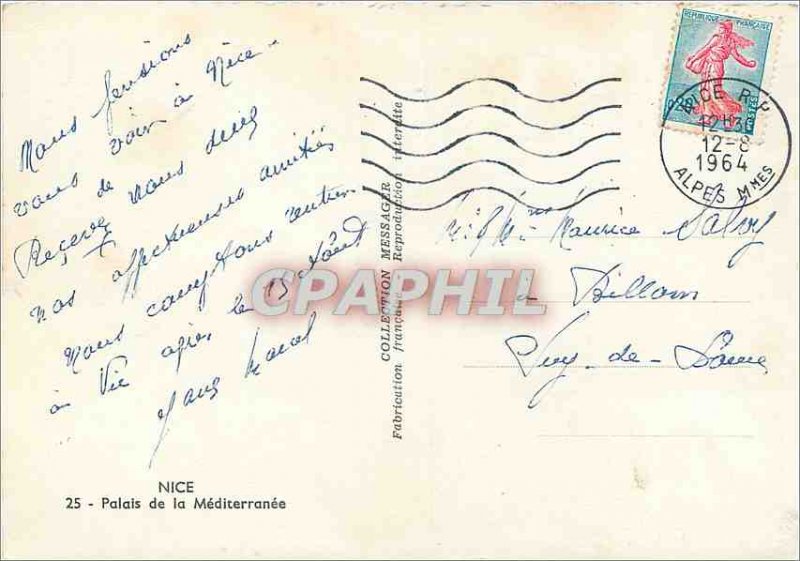 Nous pensions
vous voir à Nice -
Recevez de nous deux
nos affectueuses amitiés
Nous comptons rentrer
à Vic après le 15 Août
NICE
25 - Palais de la Méditerranée
COLLECTION MESSAGER
Fabrication française - Reproduction interdite
CPAPHIL
REPUBLIQUE FRANÇAISE
POSTES
NICE R.P
12H30
12-8
1964
ALPES MMES
Maurice Salvy
à Billom
Puy-de-Dôme